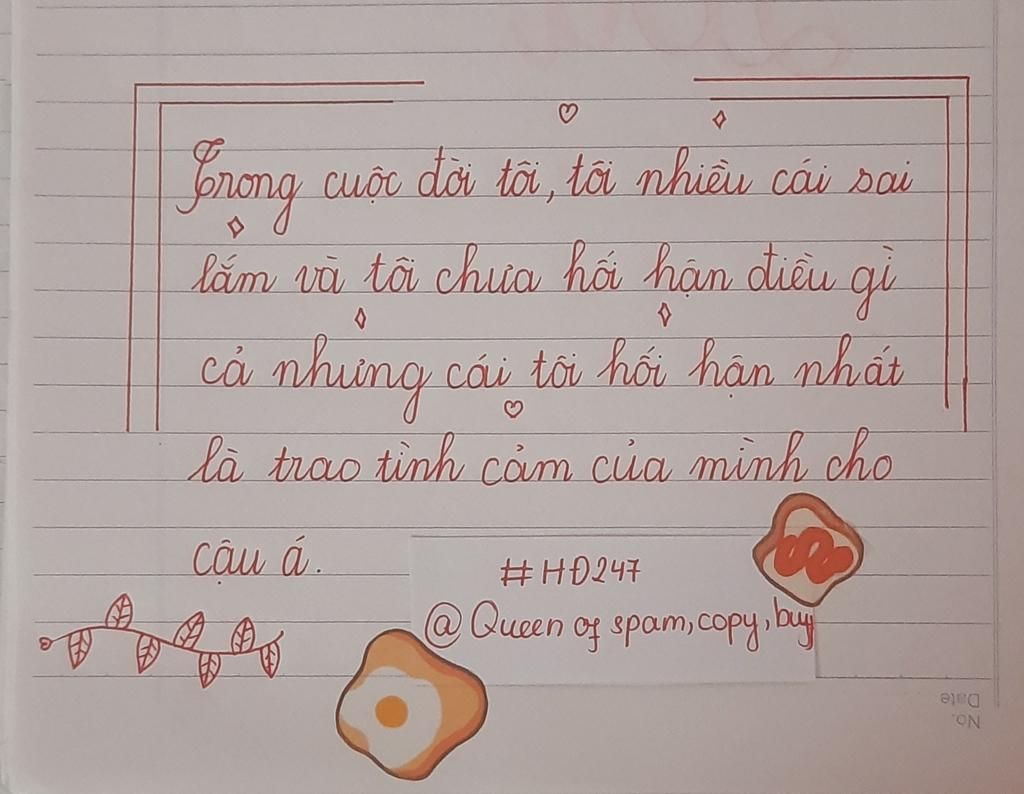 Trong cuộc đời tôi, tôi nhiều cái sai
lắm và tôi chưa hối hận điều gì
cả nhưng cái tôi hối hận nhất
là trao tình cảm của mình cho
cậu á.
#HĐ247
@Queen of spam, copy, buy
No.
Date